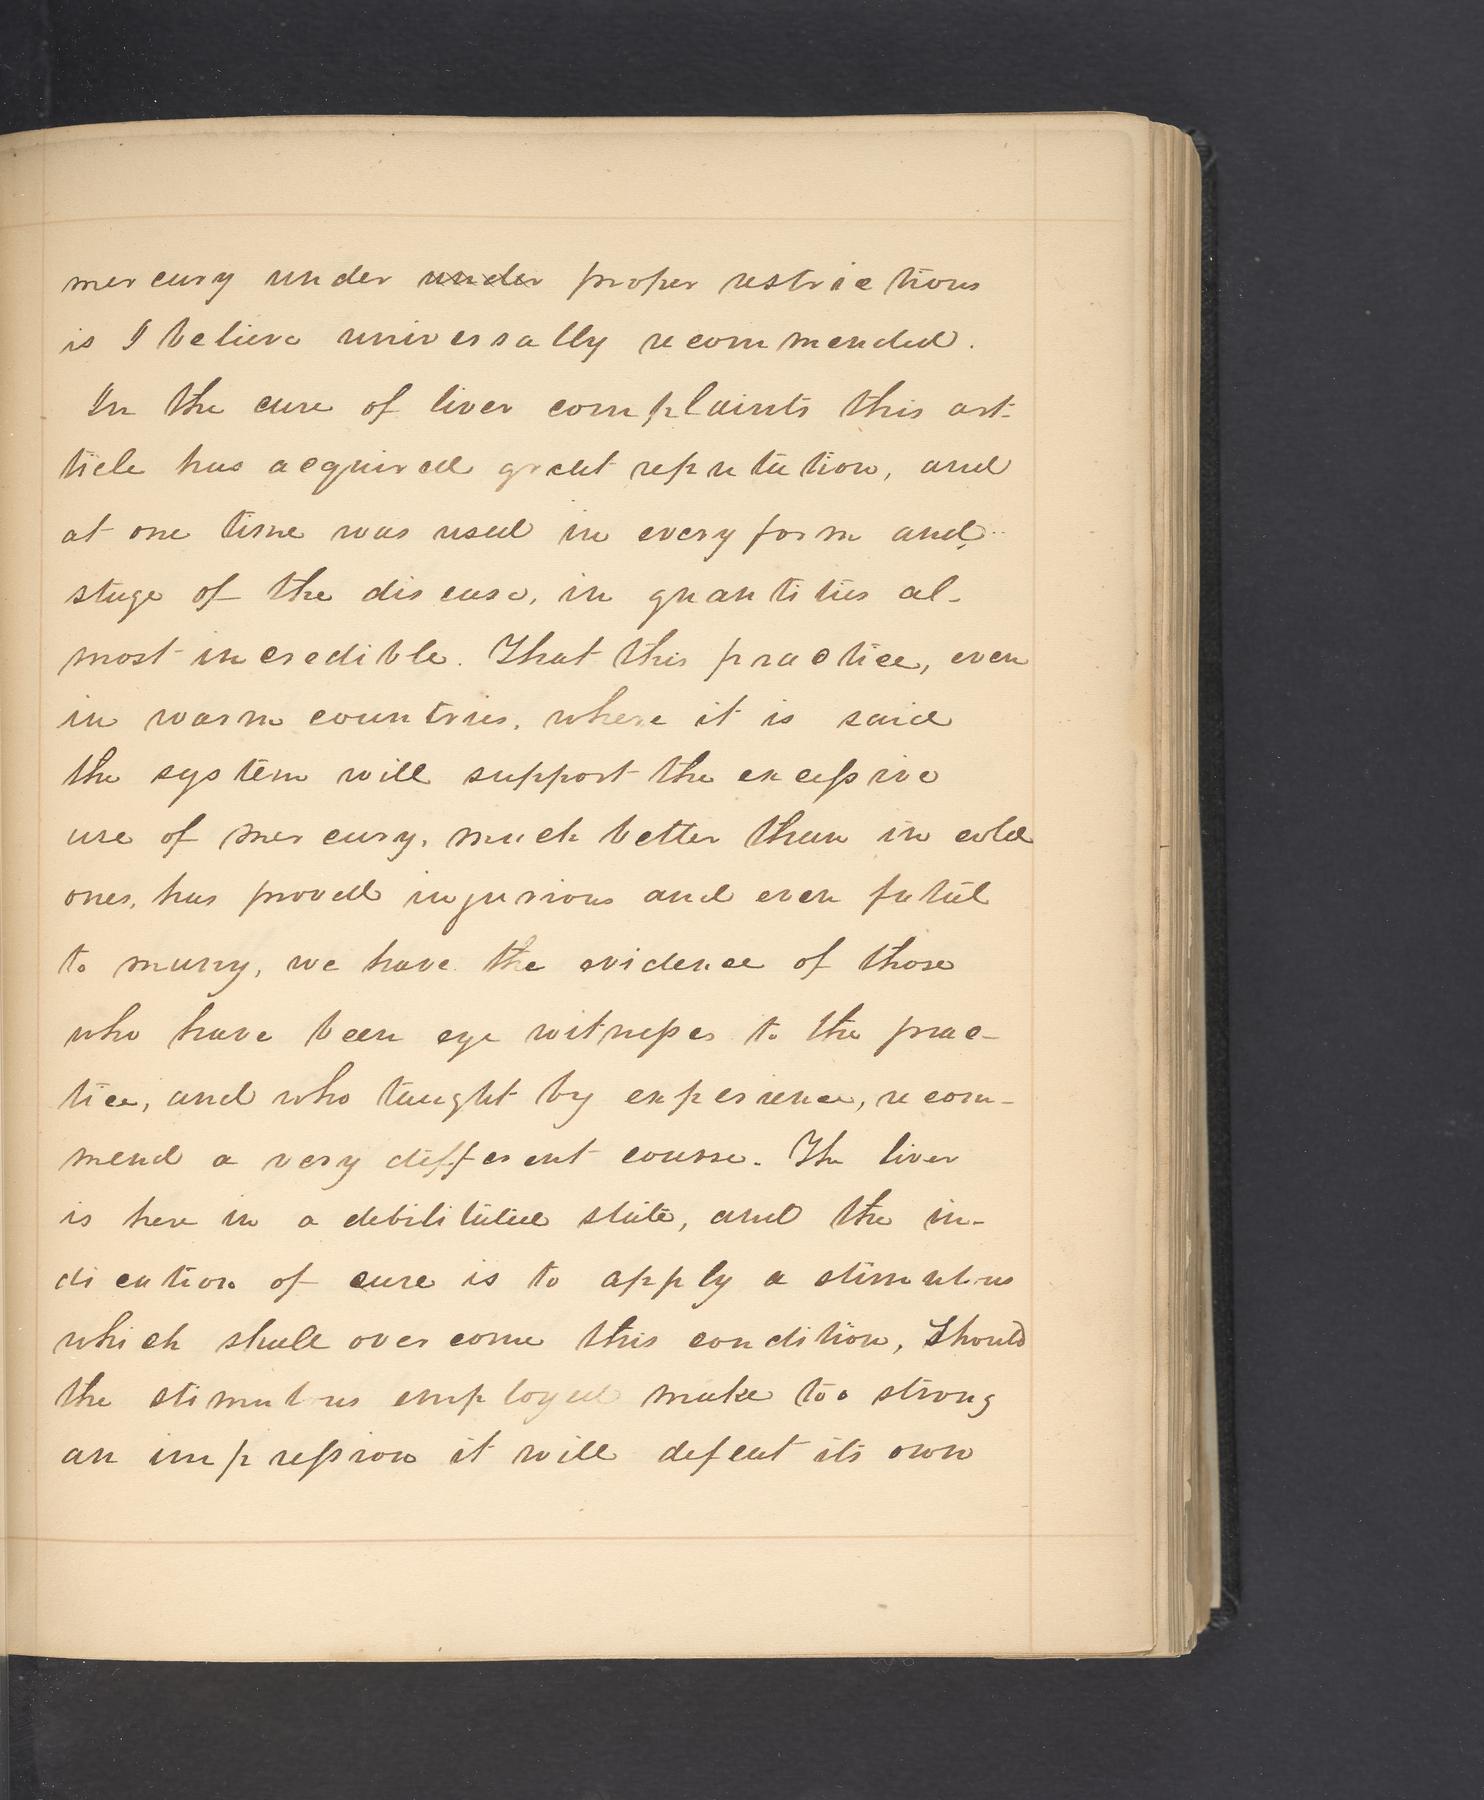 mercury under under proper restrictions
is I believe universally recommended.
In the cure of liver complaints this art-
ticle has acquired great reputation, and
at one time was used in every form and
stage of the disease, in quantities al-
most incredible. That this practice, even
in warm countries, where it is said
the system will support the excessive
use of mercury, much better than in cold
ones, has proved injurious and even fatal
to many, we have the evidence of those
who have been eye witnesses to the prac-
tice, and who taught by experience, recom-
mend a very different course. The liver
is here in a debilitated state, and the in-
dication of cure is to apply a stimulus
which shall overcome this condition, Should
the stimulus employed make too strong
an impression it will defeat its own